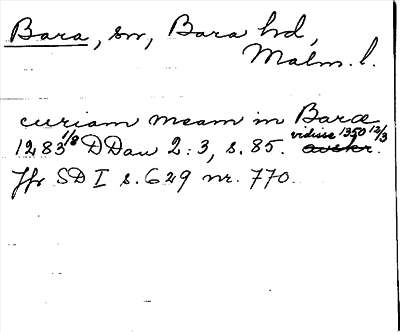 Bara, sn, Bara hd,
Malm. l.
curiam meam in Baræ
1283 1/8 DDan 2:3, s. 85. vidisse 1350 12/3
Jfr SD I s. 629 nr. 770.